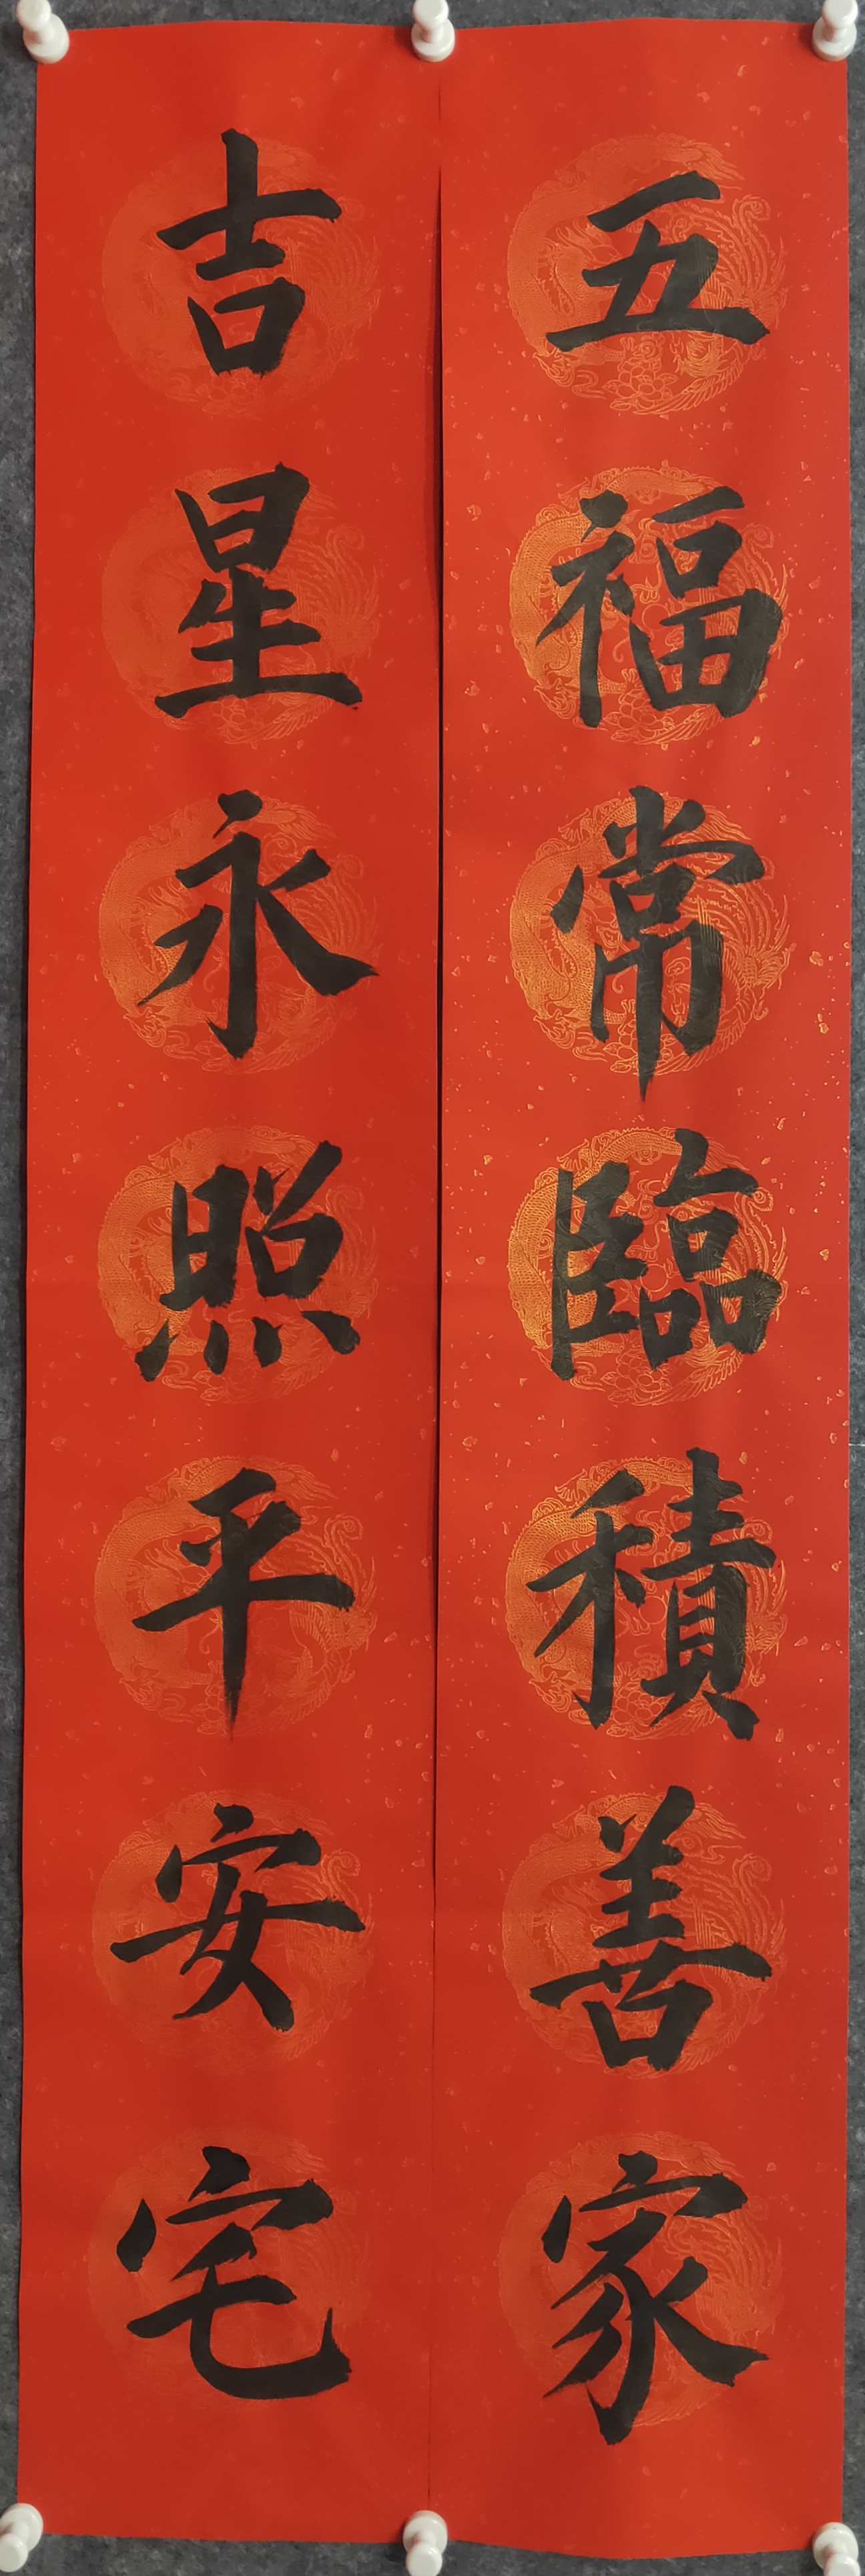 五福常臨積善家
吉星永照平安宅